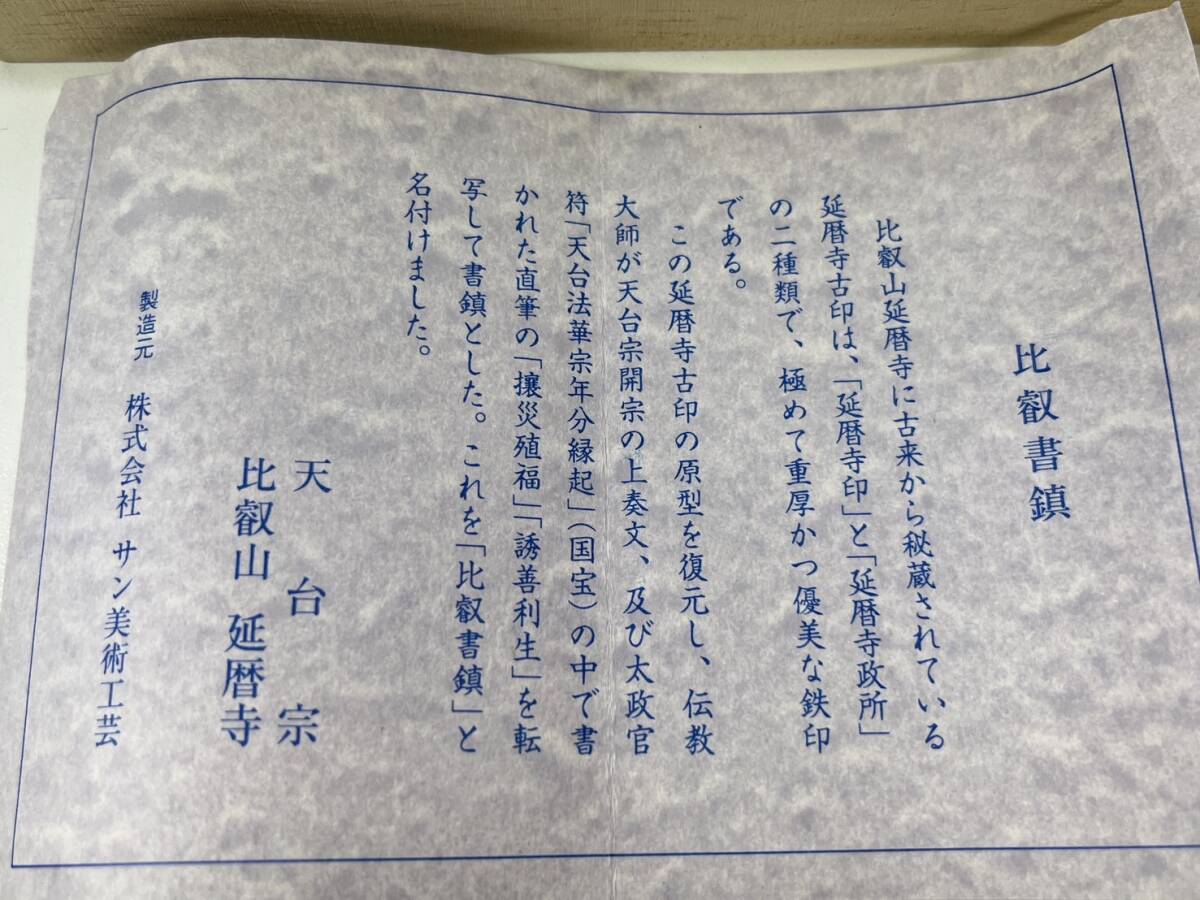 比叡書鎮
比叡山延暦寺に古来から秘蔵されている
延暦寺古印は、「延暦寺印」と「延暦寺政所」
の二種類で、極めて重厚かつ優美な鉄印
である。
この延暦寺古印の原型を復元し、伝教
大師が天台宗開宗の上奏文、及び太政官
符「天台法華宗年分縁起」(国宝)の中で書
かれた直筆の「攘災殖福」「誘善利生」を転
写して書鎮とした。これを「比叡書鎮」と
名付けました。
天台宗
比叡山 延暦寺
製造元 株式会社 サン美術工芸